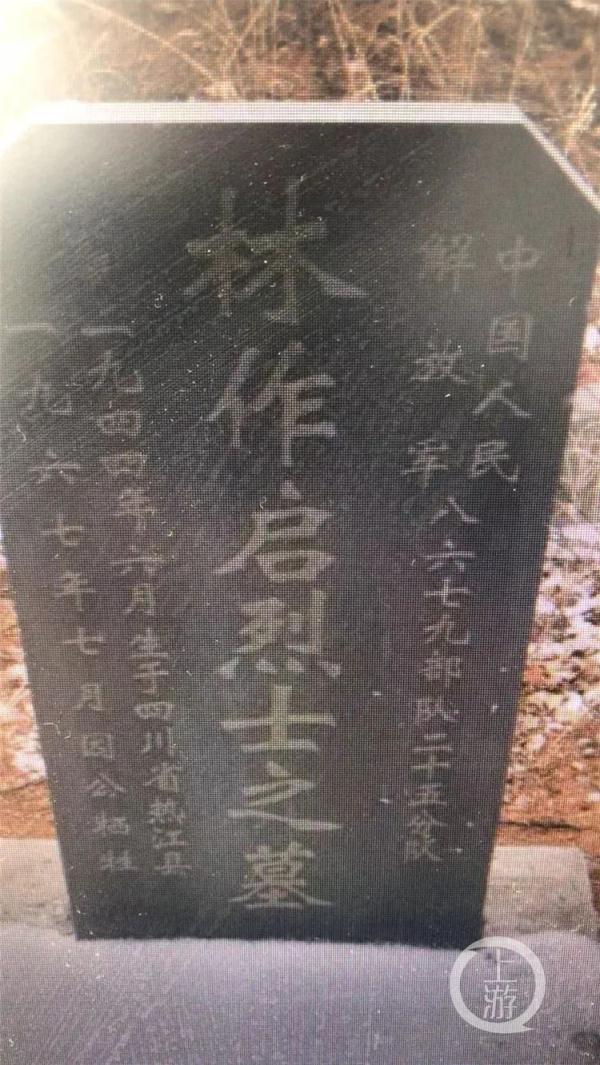 中国人民
解放军八六七九部队二十五分队
林作启烈士之墓
一九四四年六月生于四川省热江县
一九六七年七月因公牺牲
上游